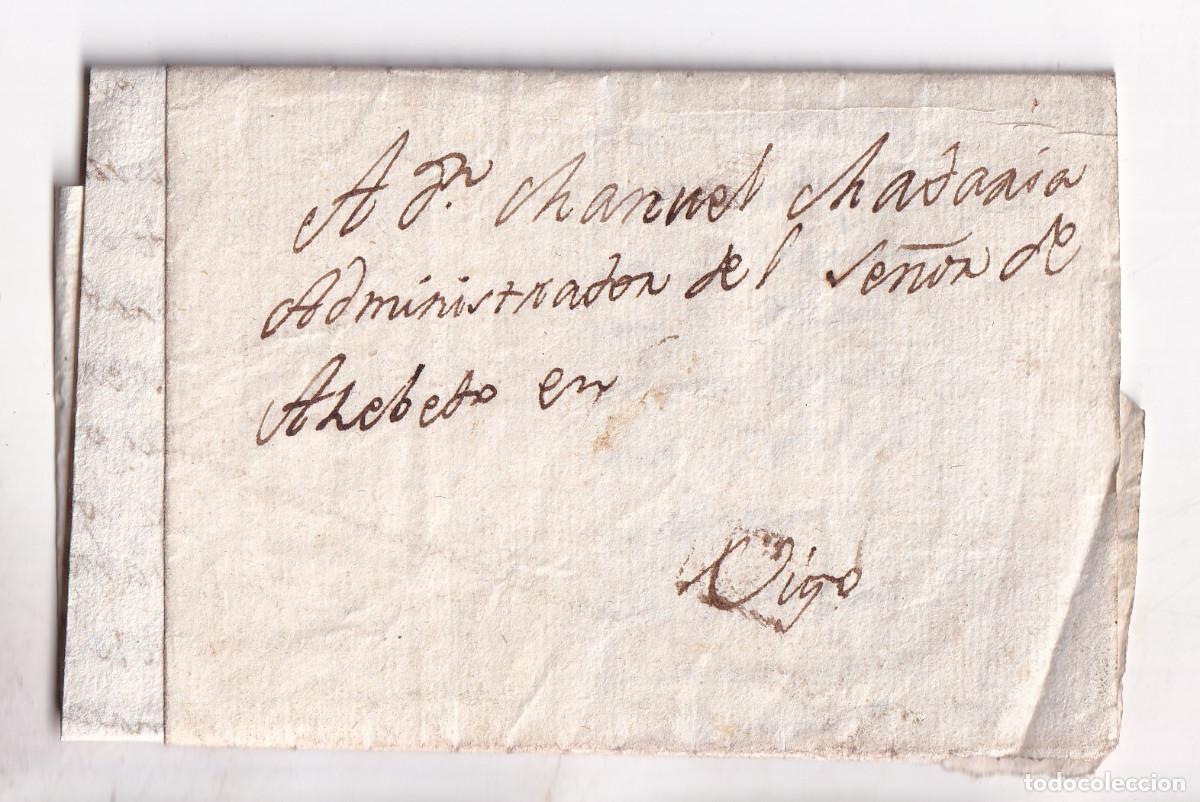 A Dn. Manuel Madania
Administrador del Señor de
Alebeto en
Vigo
todocoleccion